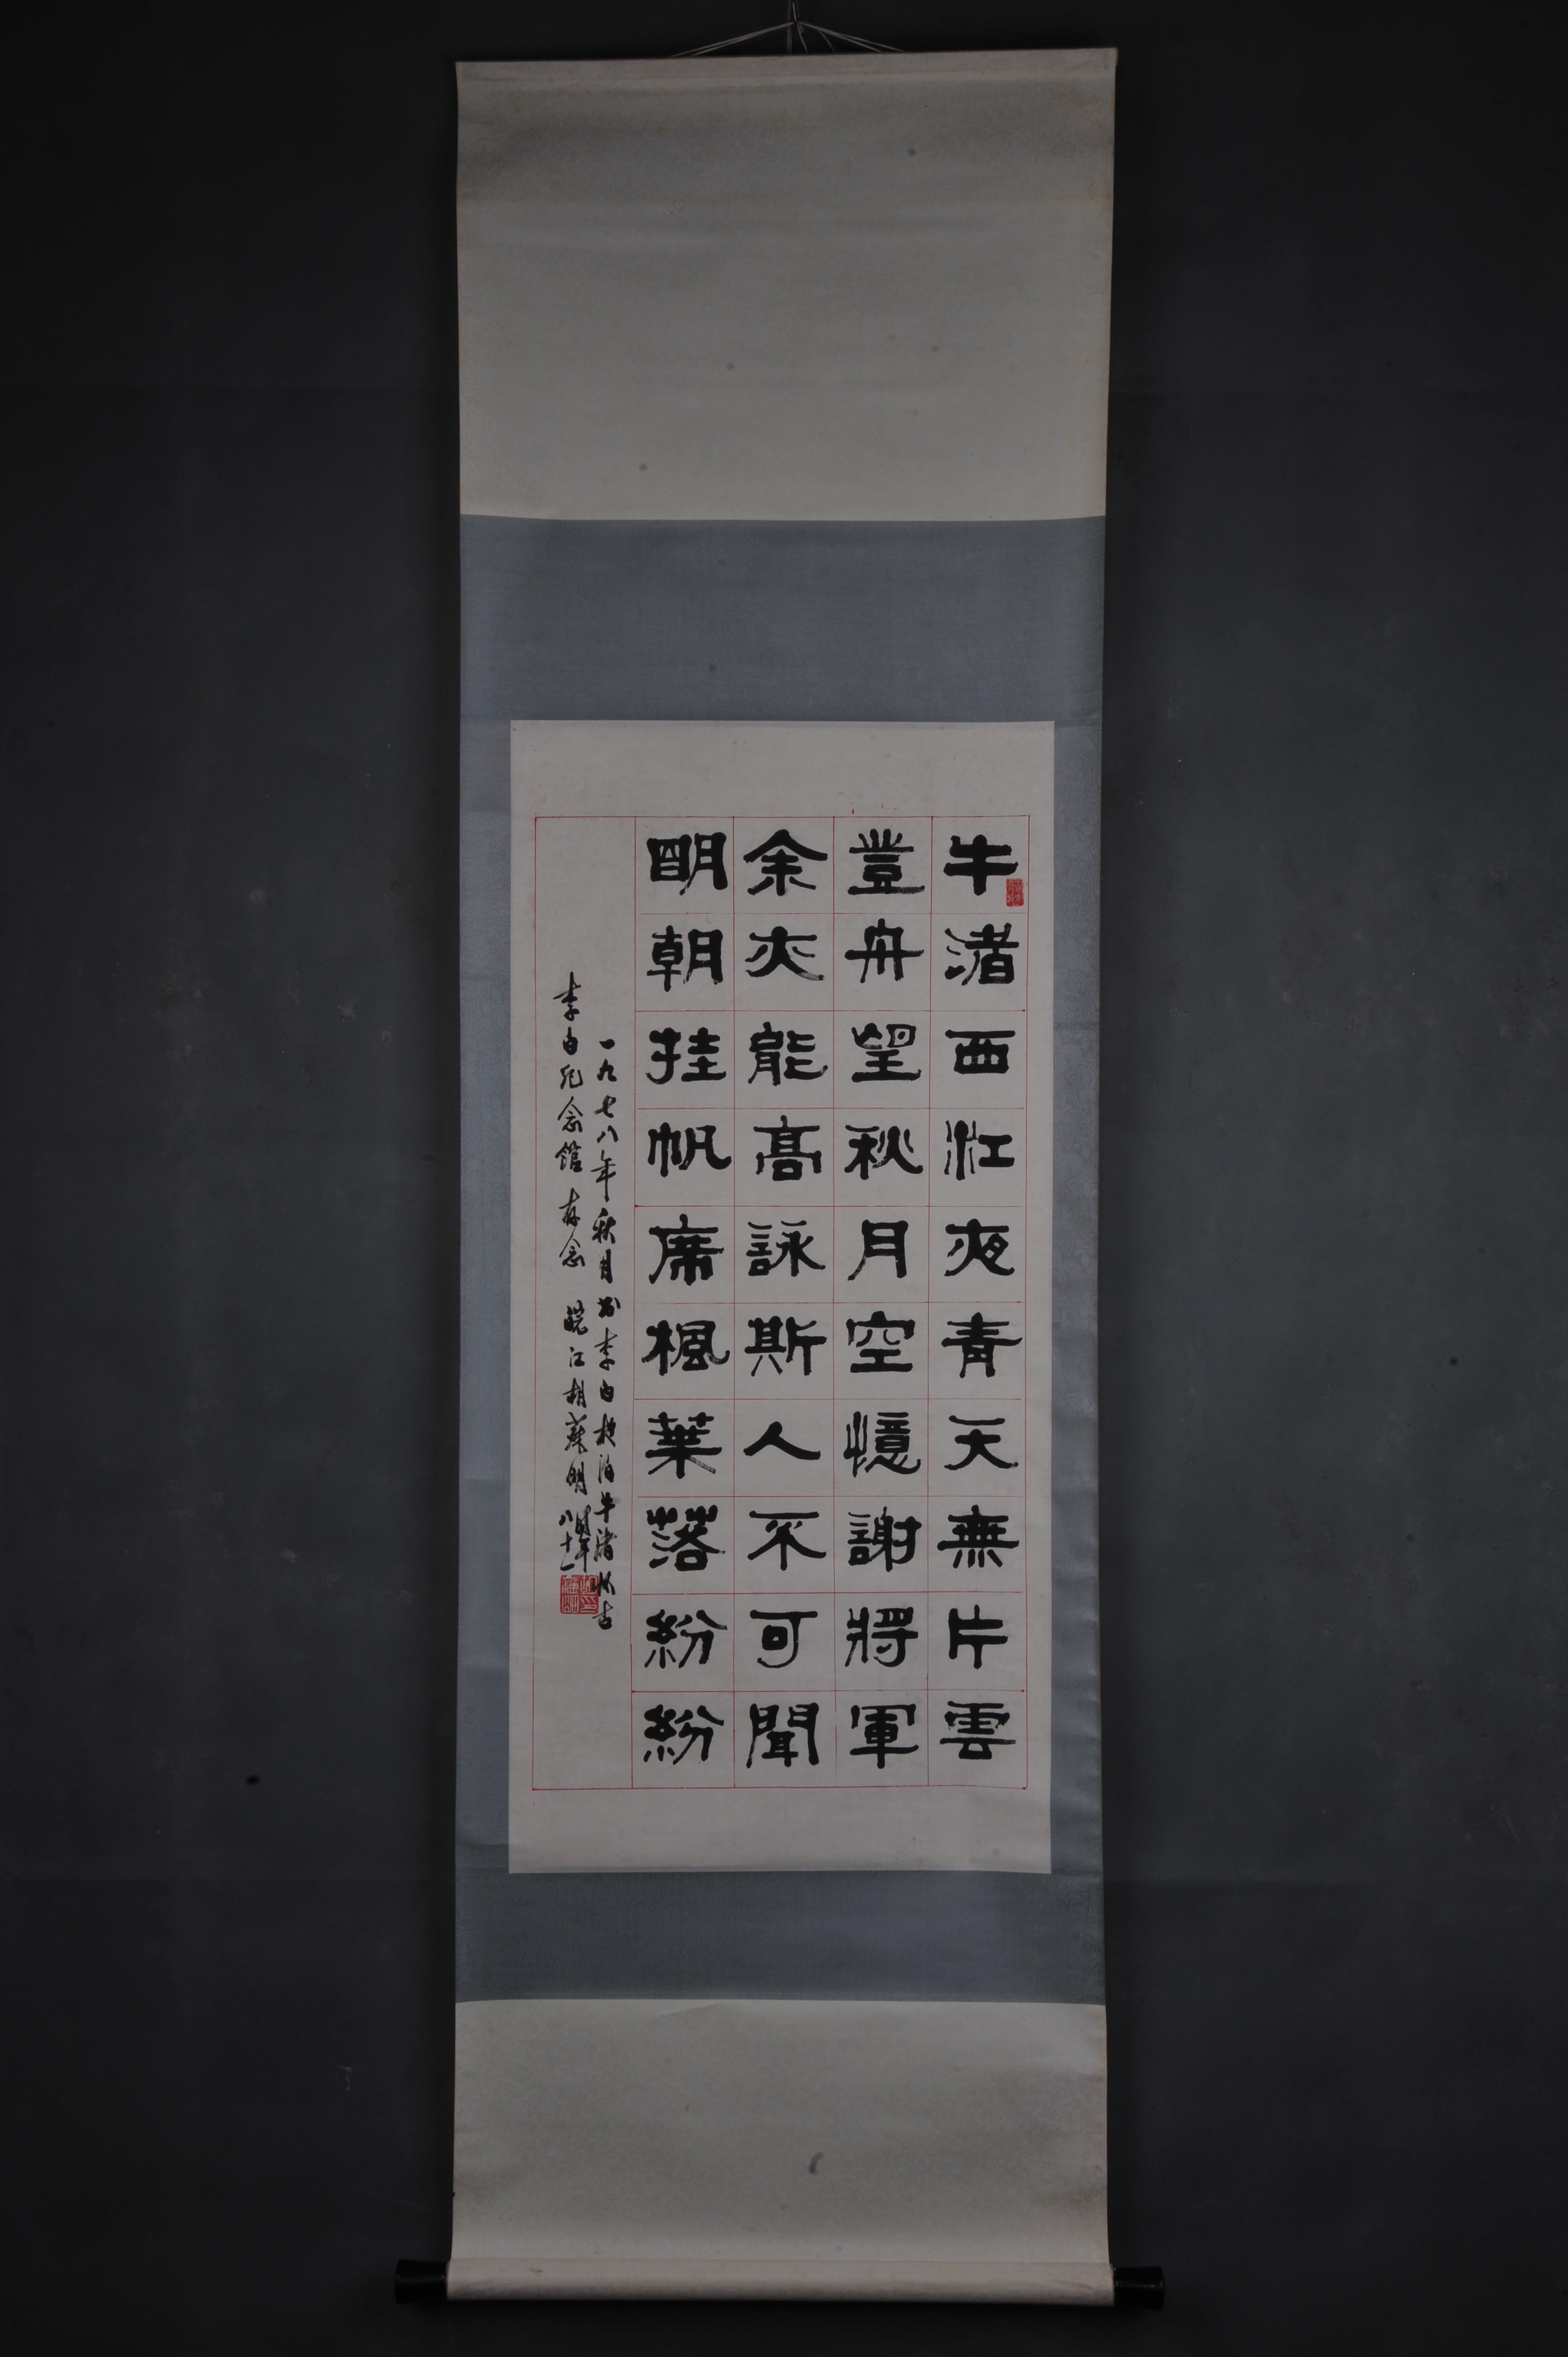 牛渚西江夜青天無片雲
登舟望秋月空憶謝將軍
余亦能高詠斯人不可聞
明朝挂帆席楓葉落紛紛
一九七八年秋月 李白夜泊牛渚怀古
李白纪念館存念 皖江胡蘇明時年八十一